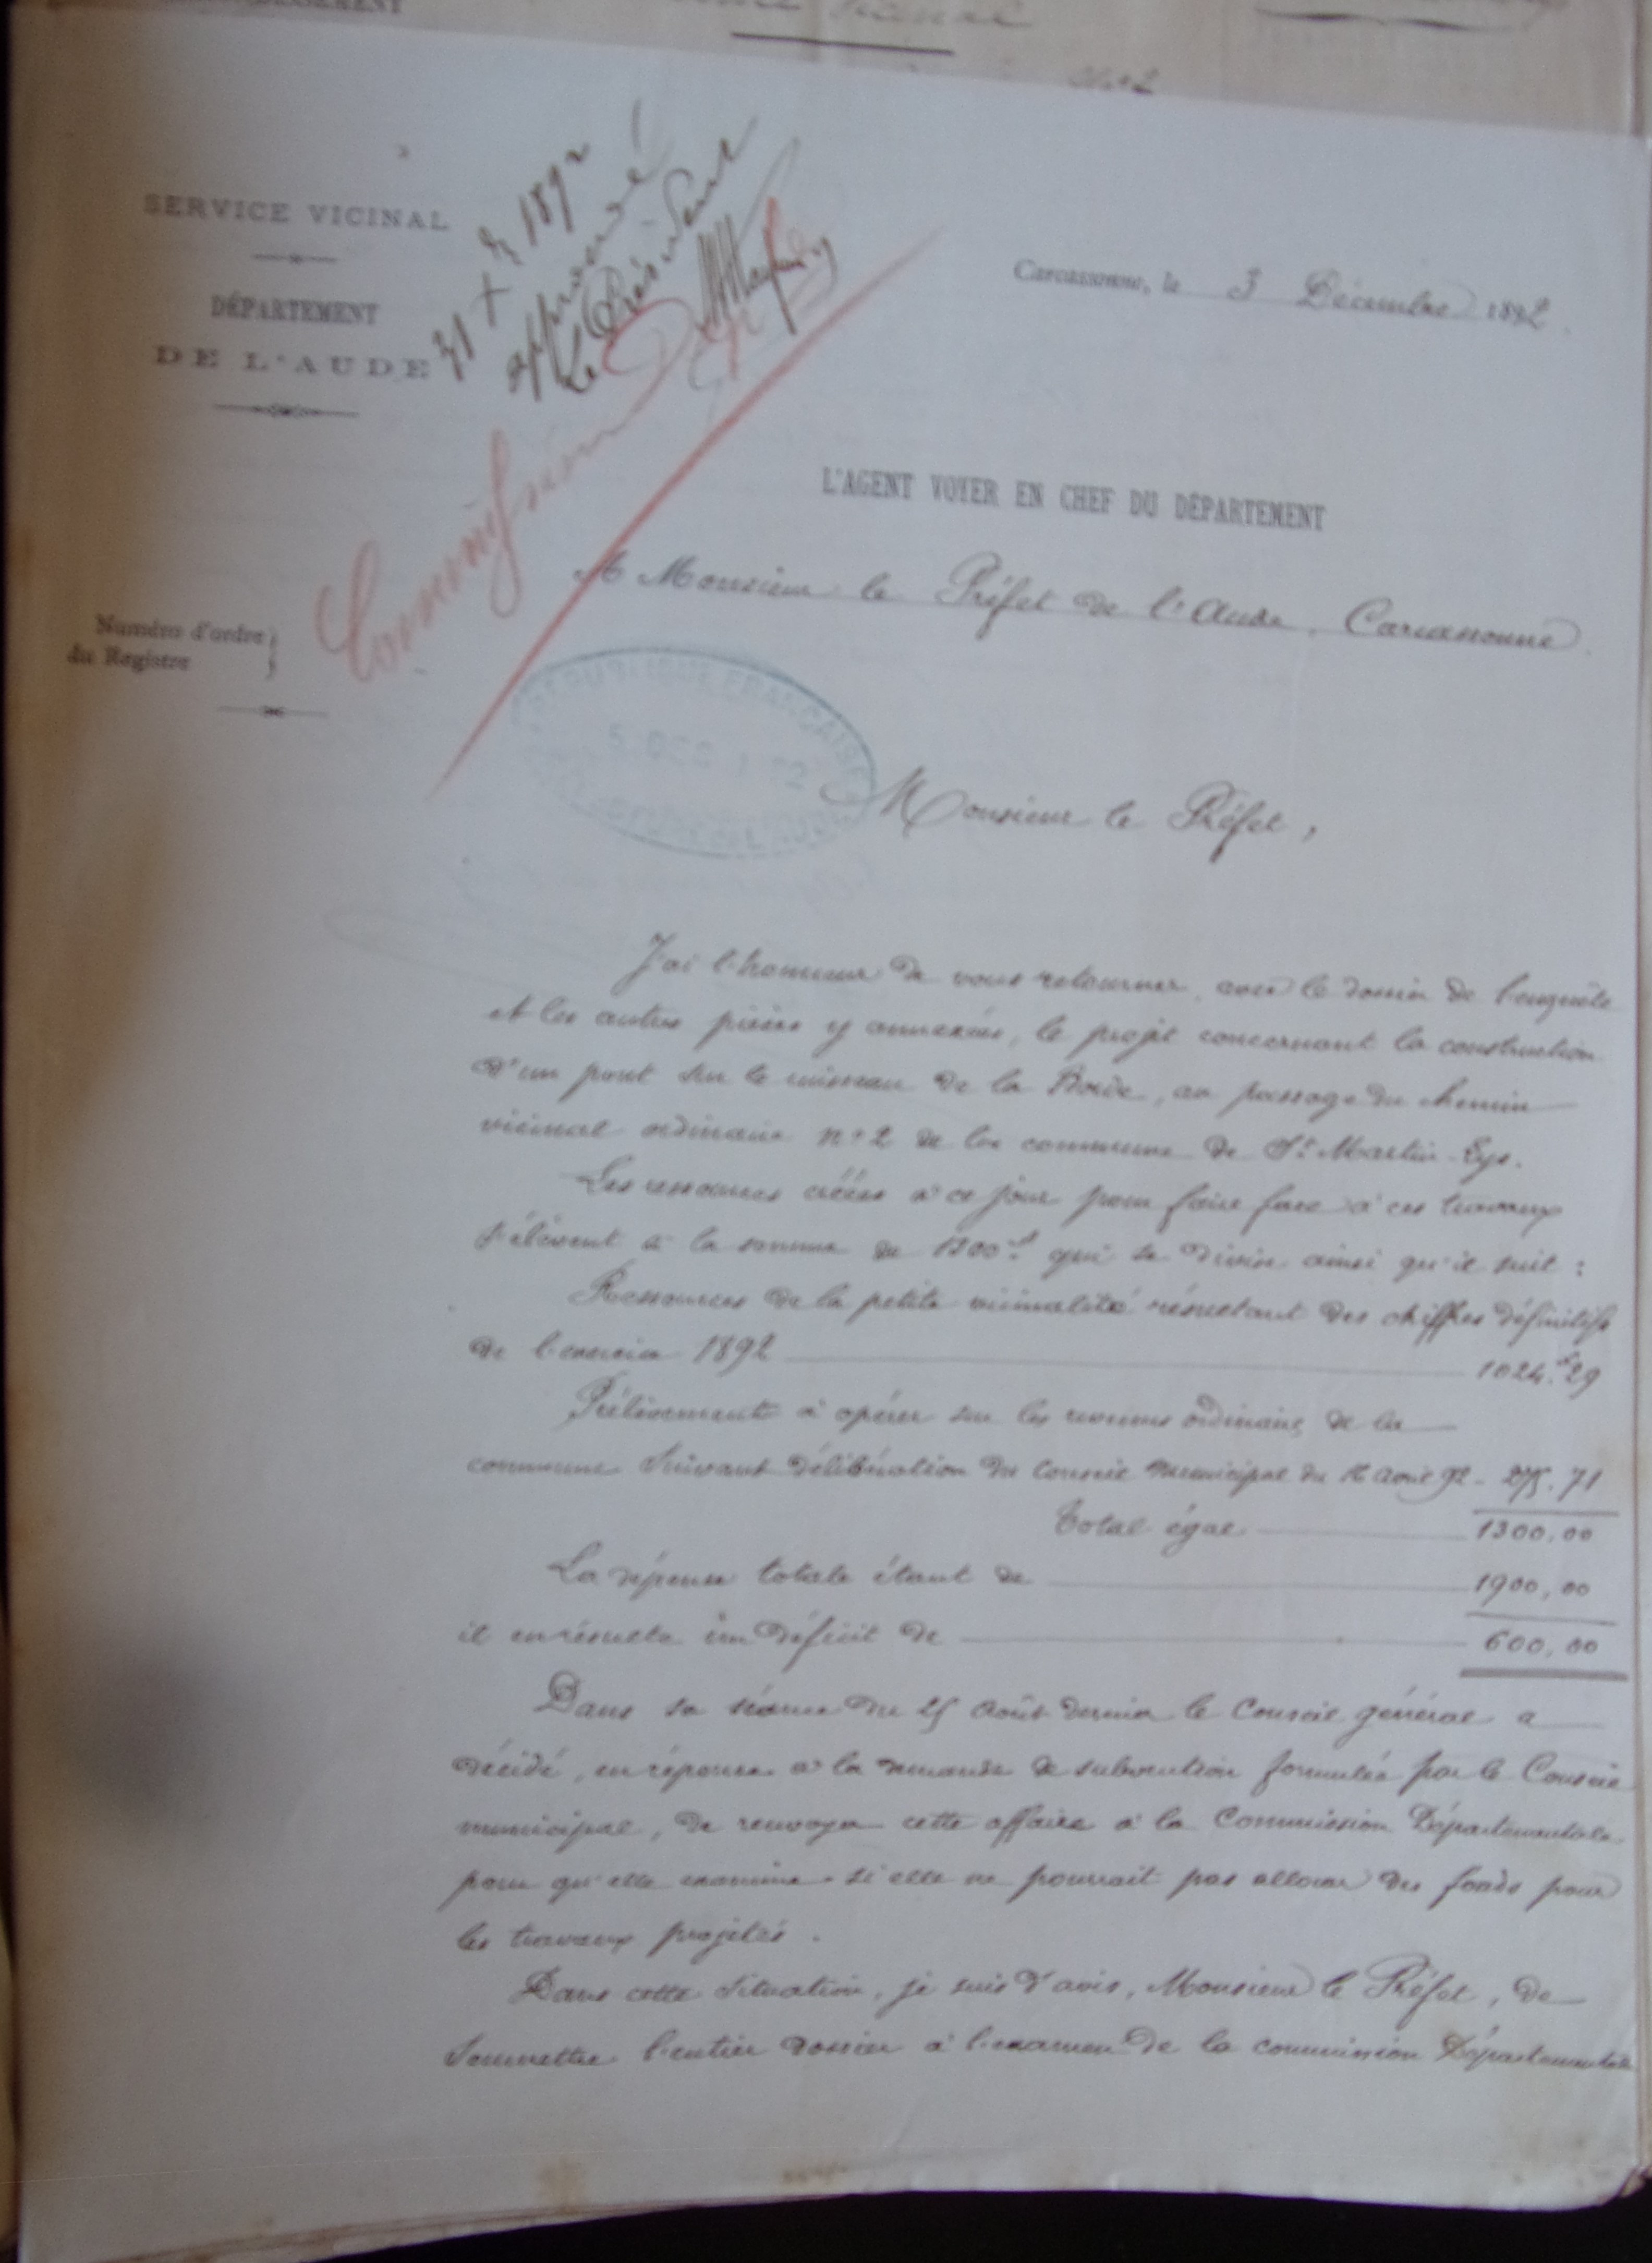 SERVICE VICINAL
DÉPARTEMENT
DE L'AUDE
31 Xbre 1892
approuvé
Le Président
Commission
Carcassonne, le 3 Décembre 1892
L'AGENT VOYER EN CHEF DU DÉPARTEMENT
A Monsieur le Préfet de l'Aude, Carcassonne
Numéro d'ordre
du Registre
RÉPUBLIQUE FRANÇAISE
5 DEC 1892
Monsieur le Préfet,
J'ai l'honneur de vous retourner, avec le dossier de l'enquête
et les autres pièces y annexées, le projet concernant la construction
d'un pont sur le ruisseau de la Borde, au passage du chemin
vicinal ordinaire n° 2 de la commune de St Martin-Lys.
Les ressources créées à ce jour pour faire face à ces travaux
s'élèvent à la somme de 1300f qui se divise ainsi qu'il suit :
Ressources de la petite vicinalité résultant des chiffres définitifs
de l'exercice 1892 1024.f29
Prélèvement à opérer sur les revenus ordinaires de la
commune suivant délibération du Conseil municipal du Avril 92 - 275.71
Total égal 1300.00
La dépense totale étant de 1900,00
il en résulte un déficit de 600,00
Dans sa séance du 25 Août dernier le Conseil général a
décidé, en réponse à la demande de subvention formulée par le Conseil
municipal, de renvoyer cette affaire à la Commission Départementale
pour qu'elle examine si elle ne pourrait pas allouer des fonds pour
les travaux projetés.
Dans cette situation, je suis d'avis, Monsieur le Préfet, de
soumettre l'entier dossier à l'examen de la commission Départementale